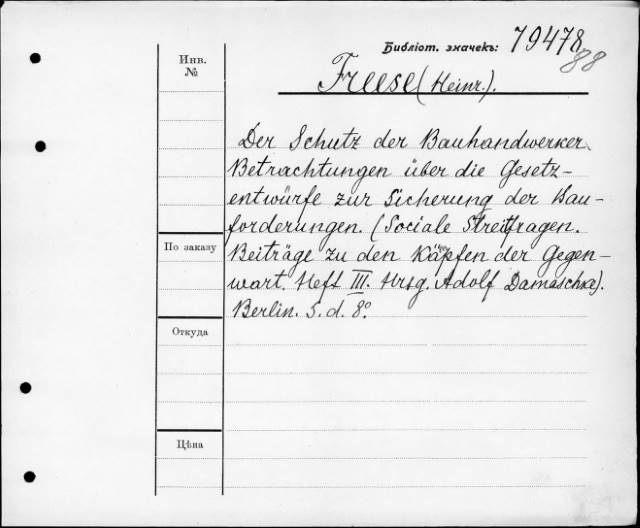 Библіот. значекъ: 79478
88
Инв. №
Freese (Heinr.).
Der Schutz der Bauhandwerker.
Betrachtungen über die Gesetz-
entwürfe zur Sicherung der Bau-
forderungen. (Sociale Streitfragen.
Beiträge zu den Kämpfen der Gegen-
wart. Heft III. Hrsg. Adolf Damaschke).
Berlin. s. d. 8º.
По заказу
Откуда
Цѣна